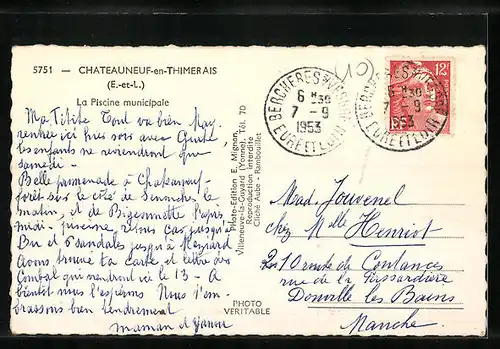 5751 — CHATEAUNEUF-en-THIMERAIS
(E.-et-L.)
La Piscine municipale
Ma Titite Tout va bien May
rentrée ici hier soir avec
les enfants ne reviendront que
samedi -
Belle promenade à Chateauneuf
forêt sur le côté de Senonches le
matin, et de Bizonnette l'après
midi - piscine, retour jusqu'à
Bu et Sandales jusqu'à
Avons trouvé ta carte et
qui viendront ici le 13 - A
bientôt nous l'espérons Nous t'em-
brassons bien tendrement
maman et Yanne
Photo-Edition E. Mignon,
Villeneuve-la-Guyard (Yonne). Tél. 70
Reproduction interdite
Cliché Aube - Rambouillet
PHOTO
VERITABLE
BERCHERES S/ VESGRE
6 H 30
7 - 9
1953
EURE ET LOIR
BERCHERES S/ VESGRE
6 H 30
7 - 9
1953
EURE ET LOIR
12F
Mad. Jouvenel
chez Mlle Henriot
210 route de Coutances
rue de la
Donville les Bains
Manche